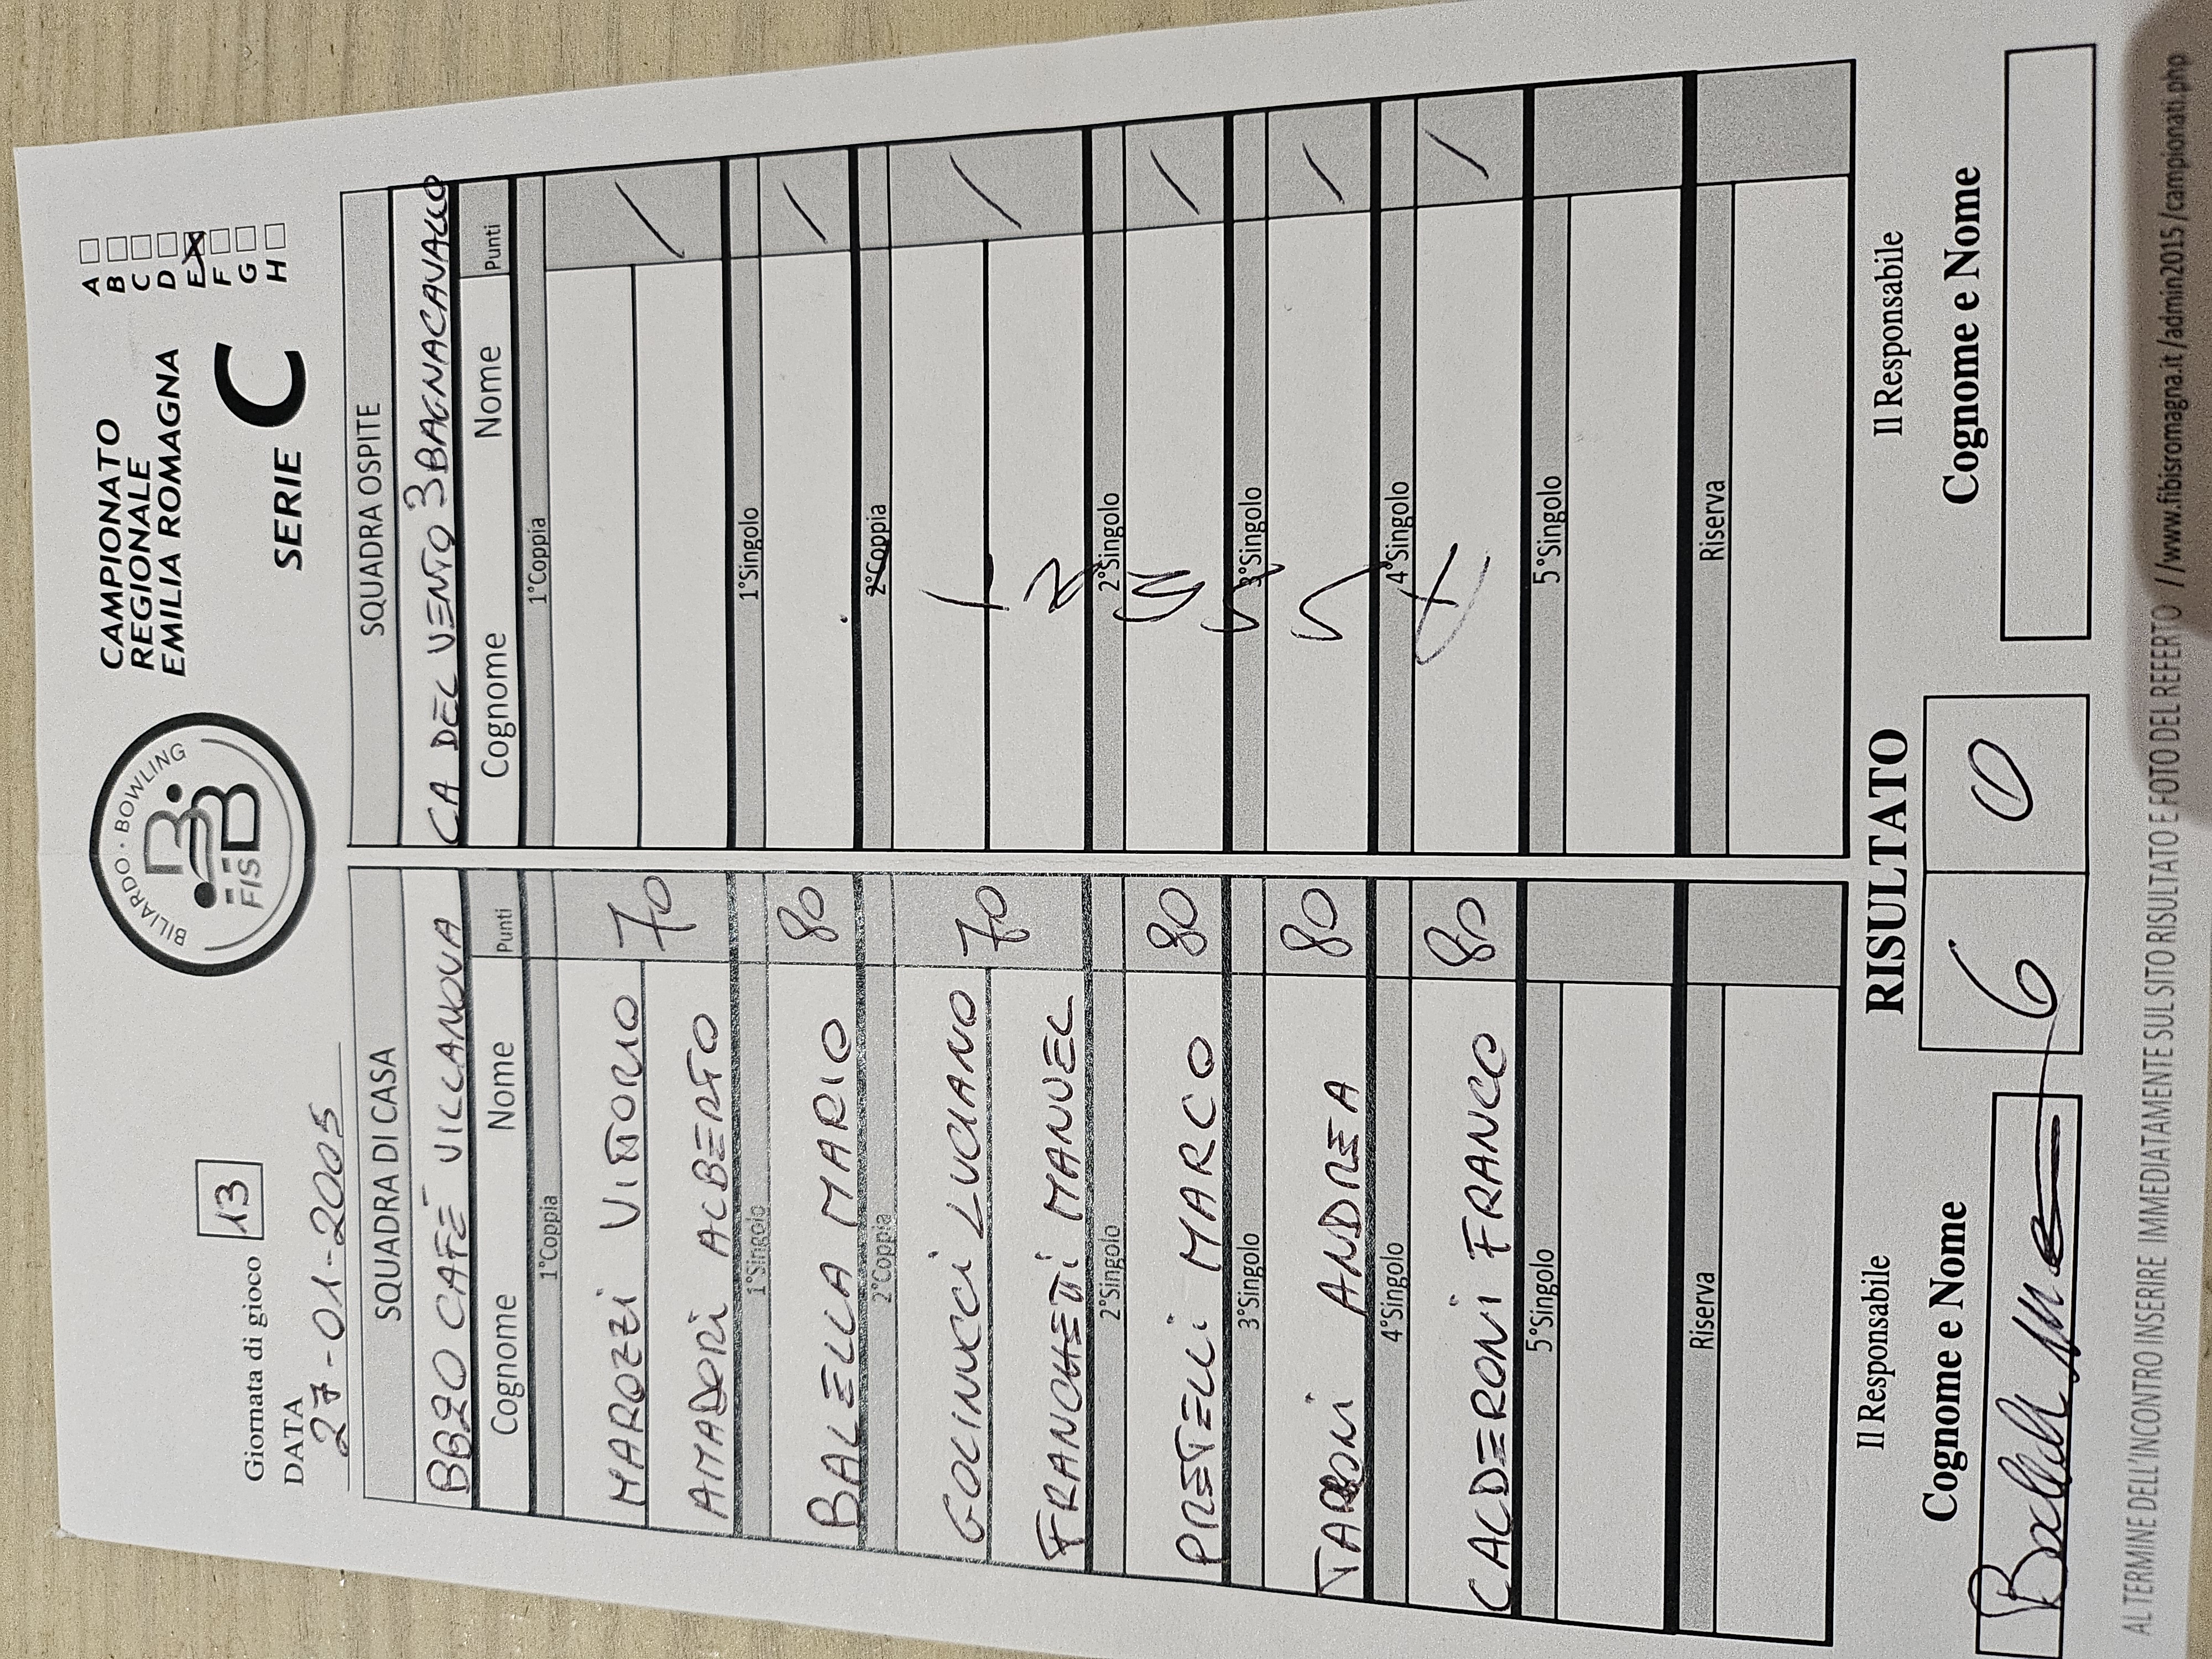 Giornata di gioco 13
DATA
27-01-2005
BILIARDO · BOWLING
FISBB
CAMPIONATO
REGIONALE
EMILIA ROMAGNA
SERIE C
A
B
C
D
E X
F
G
H
SQUADRA DI CASA
BB20 CAFÈ VILLANOVA
Cognome Nome Punti
1°Coppia
MAROZZI VITTORIO
70
AMADORI ALBERTO
1°Singolo
BALELLA MARIO 80
2°Coppia
GOLINUCCI LUCIANO
70
FRANCHETTI MANUEL
2°Singolo
PRETELLI MARCO 80
3°Singolo
TARONI ANDREA 80
4°Singolo
CALDERONI FRANCO 80
5°Singolo
Riserva
SQUADRA OSPITE
CA DEL VENTO 3 BAGNACAVALLO
Cognome Nome Punti
1°Coppia
/
1°Singolo
/
2°Coppia
/
2°Singolo
/
3°Singolo
/
4°Singolo
/
5°Singolo
Riserva
Il Responsabile
Cognome e Nome
RISULTATO
6 0
Il Responsabile
Cognome e Nome
AL TERMINE DELL'INCONTRO INSERIRE IMMEDIATAMENTE SUL SITO RISULTATO E FOTO DEL REFERTO //www.fibisromagna.it/admin2015/campionati.php